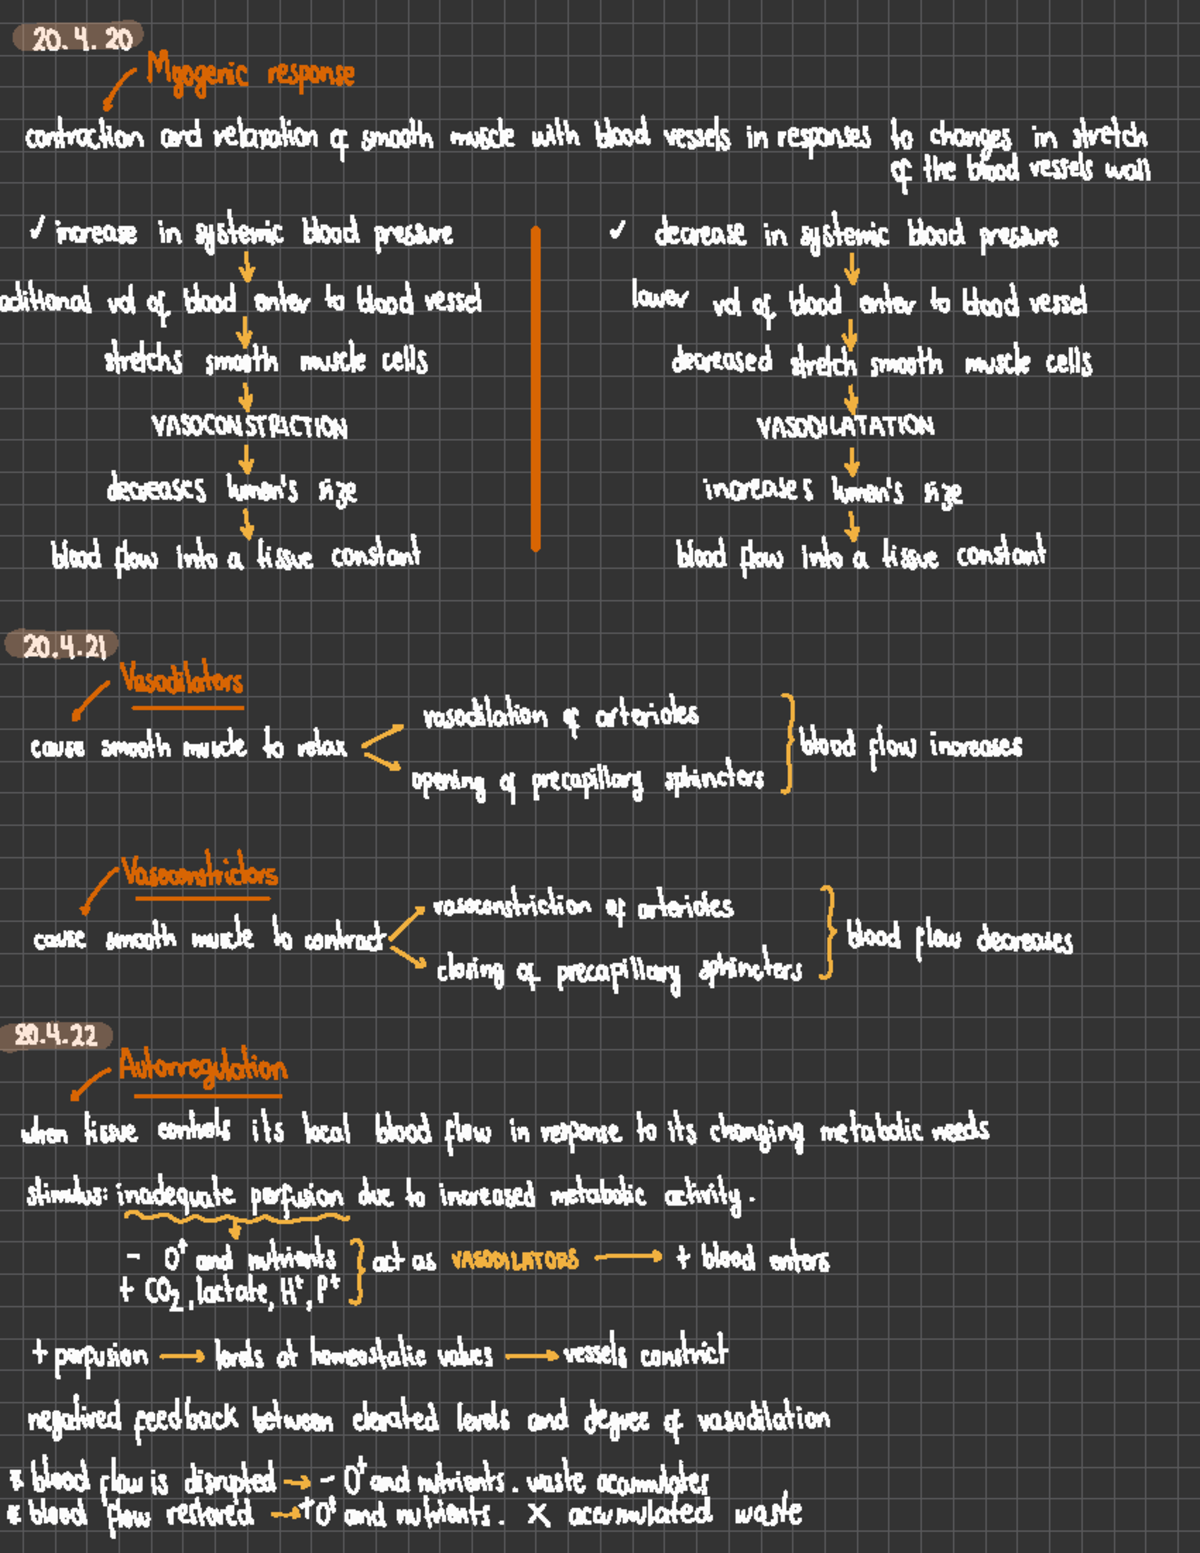 20.4.20
Myogenic response
contraction and relaxation of smooth muscle with blood vessels in responses to changes in stretch
of the blood vessels wall
✓ increase in systemic blood pressure
aditional vol of blood enter to blood vessel
stretchs smooth muscle cells
VASOCONSTRICTION
decreases lumen's size
blood flow into a tissue constant
✓ decrease in systemic blood pressure
lower vol of blood enter to blood vessel
decreased stretch smooth muscle cells
VASODILATATION
increases lumen's size
blood flow into a tissue constant
20.4.21
Vasodilators
cause smooth muscle to relax
vasodilation of arterioles
opening of precapillary sphincters
blood flow increases
Vasoconstrictors
cause smooth muscle to contract
vasoconstriction of arterioles
closing of precapillary sphincters
blood flow decreases
20.4.22
Autorregulation
when tissue controls its local blood flow in response to its changing metabolic needs
stimulus: inadequate perfusion due to increased metabolic activity.
- O⁺ and nutrients
+ CO₂, lactate, H⁺, P⁺
act as VASODILATORS → + blood enters
+ perfusion → levels at homeostatic values → vessels constrict
negatived feedback between elevated levels and degree of vasodilation
* blood flow is disrupted → - O⁺ and nutrients. waste acumulates
* blood flow restored → + O⁺ and nutrients. X accumulated waste